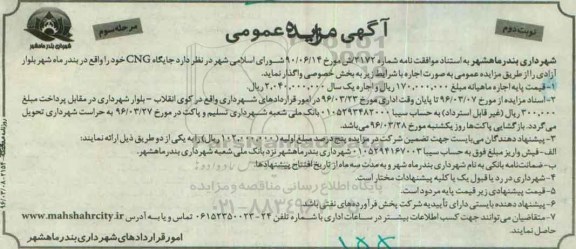 نوبت دوم
آگهی مزایده عمومی
مرحله سوم
شهرداری بندرماهشهر
شهرداری بندرماهشهر به استناد موافقت نامه شماره ۳۱۷۲/ش مورخ ۹۰/۰۶/۱۴ شورای اسلامی شهر در نظر دارد جایگاه CNG خود را واقع در بندر ماه شهر بلوار
آزادی را از طریق مزایده عمومی به صورت اجاره با شرایط زیر به بخش خصوصی واگذار نماید.
۱-قیمت پایه اجاره ماهیانه مبلغ ۱۷۰.۰۰۰.۰۰۰ ریال و اجاره یک سال ۲.۰۴۰.۰۰۰.۰۰۰ ریال
۲-اسناد مزایده از مورخ ۹۶/۰۳/۰۷ تا پایان وقت اداری مورخ ۹۶/۰۳/۲۳ در امور قراردادهای شهرداری واقع در کوی انقلاب - بلوار شهرداری در مقابل پرداخت مبلغ
۳۰۰.۰۰۰ ریال (غیر قابل استرداد) به حساب سیبا ۰۱۰۵۲۹۳۴۸۲۰۰۰ بانک ملی شعبه شهرداری تسلیم و پاکت در مورخ ۹۶/۰۳/۲۷ به حراست شهرداری تحویل
می گردد. بازگشایی پاکت ها روز یکشنبه مورخ ۹۶/۰۳/۲۸ می باشد.
۳- پیشنهاد دهندگان می بایست جهت تضمین شرکت در مزایده پنج درصد مبلغ اولیه (۱۰۲.۰۰۰.۰۰۰ ریال) را به یکی از دو طریق ذیل ارائه نمایند:
الف-فیش واریز مبلغ فوق به حساب سیبا ۰۱۰۵۲۹۴۱۶۷۰۰۳ شهرداری بندرماهشهر نزد بانک ملی شعبه شهرداری بندرماهشهر.
ب-ضمانت نامه بانکی به نام شهرداری بندرماه شهر و به مدت سه ماه از تاریخ افتتاح پیشنهادها.
۴- شهرداری در رد یا قبول یک یا کلیه پیشنهادات مختار است.
۵- قیمت پیشنهادی زیر قیمت پایه مردود است.
۶- پیشنهاد دهنده بایستی دارای تأییدیه شرکت پخش فرآورده های نفتی باشد.
۷- متقاضیان می توانند جهت کسب اطلاعات بیشتر در ساعات اداری با شماره تلفن ۲۴-۰۶۱۵۲۳۵۰۰۲۳ تماس و یا به آدرس www.mahshahrcity.ir
حاصل نمایند.
امور قراردادهای شهرداری بندرماهشهر
پایگاه اطلاع رسانی مناقصه و مزایده